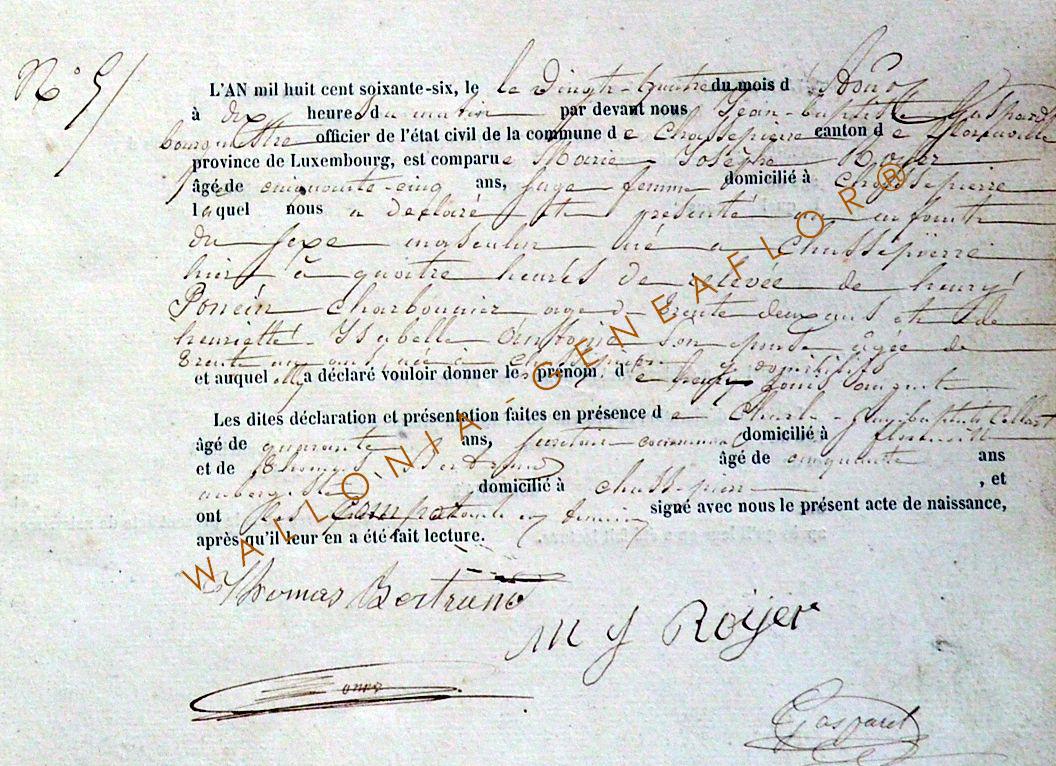 N° 5
L'AN mil huit cent soixante-six, le le Vingt-Quatre du mois d'Aout
à dix heures du matin par devant nous Jean-baptiste Gaspard
bourguestre officier de l'état civil de la commune de Chassepierre canton de Florenville
province de Luxembourg, est comparue Marie-Josèphe Royer
âgé de cinquante-cinq ans, sage femme domicilié à Chassepierre
laquel nous a déclaré et présenté un enfant
du sexe masculin né a Chassepierre
hier à quatre heures de relevée de henry
Poncin Charbonnier age de trente deux ans et de
henriette Isabelle son epouse agée de
trente un ans née à Chassepierre y domiciliés
et auquel elle a déclaré vouloir donner les prénom de henry Louis
Les dites déclaration et présentation faites en présence de Charle-Jean baptiste Collart
âgé de quarante ans, domicilié à florenville
et de Thomas Bertrand âgé de cinquante ans
aubergiste domicilié à Chassepierre , et
ont les comparante et temoins signé avec nous le présent acte de naissance,
après qu'il leur en a été fait lecture.
Thomas Bertrand
M J Roÿer
Gaspard
WALLONIA-GENEAFLOR®